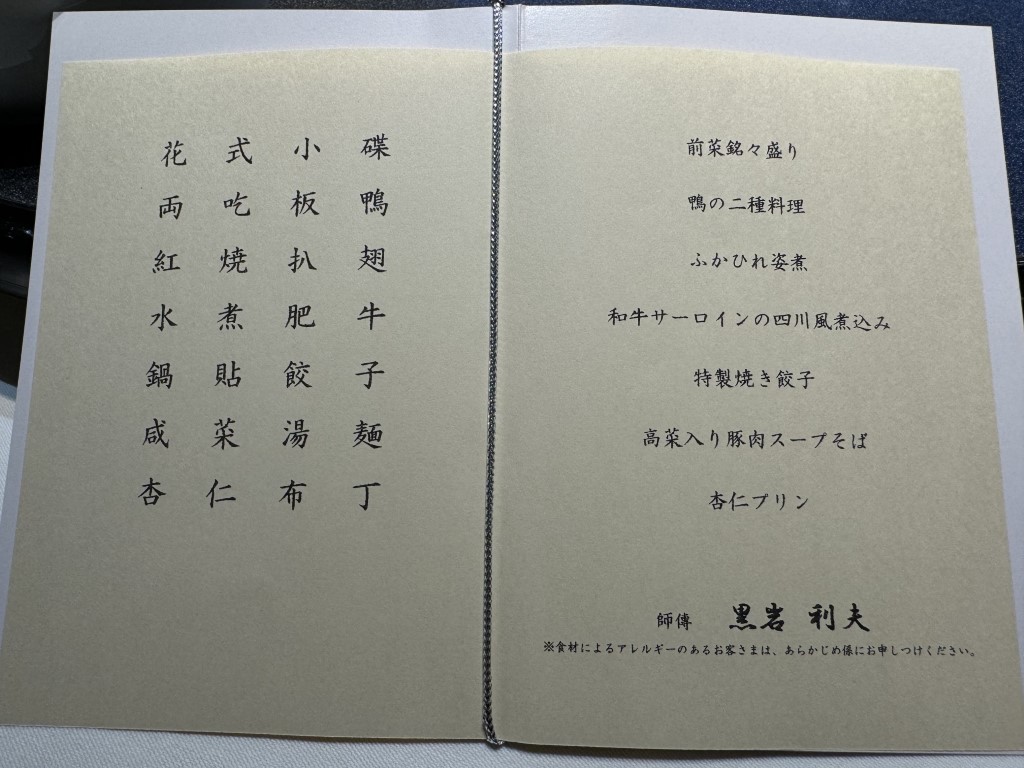 花式小碟
両吃板鴨
紅焼扒翅
水煮肥牛
鍋貼餃子
咸菜湯麺
杏仁布丁
前菜銘々盛り
鴨の二種料理
ふかひれ姿煮
和牛サーロインの四川風煮込み
特製焼き餃子
高菜入り豚肉スープそば
杏仁プリン
師傳 黒岩 利夫
※食材によるアレルギーのあるお客さまは、あらかじめ係にお申しつけください。